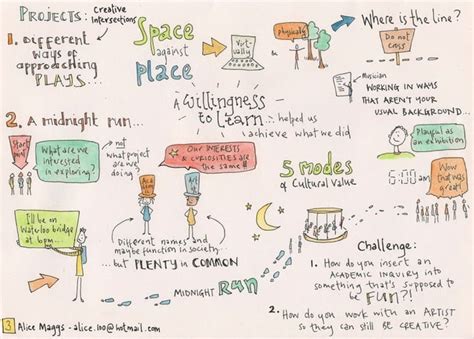 PROJECTS:
Creative
Intersections
1. DIFFERENT
WAYS OF
APPROACHING
PLAYS...
Space
against
place
Virt-
ually
physically
Where is the line?
Do not
cross
Musician
WORKING IN WAYS
THAT AREN'T YOUR
USUAL BACKGROUND...
A Willingness
to Learn...
helped us
achieve what we did
2. A midnight run...
Start
point
What are we
interested
in exploring?
not
what project
are we
doing?
Our INTERESTS
& CURIOSITIES are
the same!!
Different names and
maybe function in society...
...but PLENTY in COMMON
I'll be on
Waterloo bridge
at 6pm...
MIDNIGHT RUN
5 MODES
of Cultural Value
Playful as
an exhibition
5:00am
Wow
that was
great!
Challenge:
1. HOW DO YOU INSERT AN
ACADEMIC INQUIRY INTO
SOMETHING THAT'S SUPPOSED
TO BE FUN?!
2. HOW DO YOU WORK WITH AN ARTIST
SO THEY CAN STILL BE CREATIVE?
3 Alice Maggs - alice.100@hotmail.com